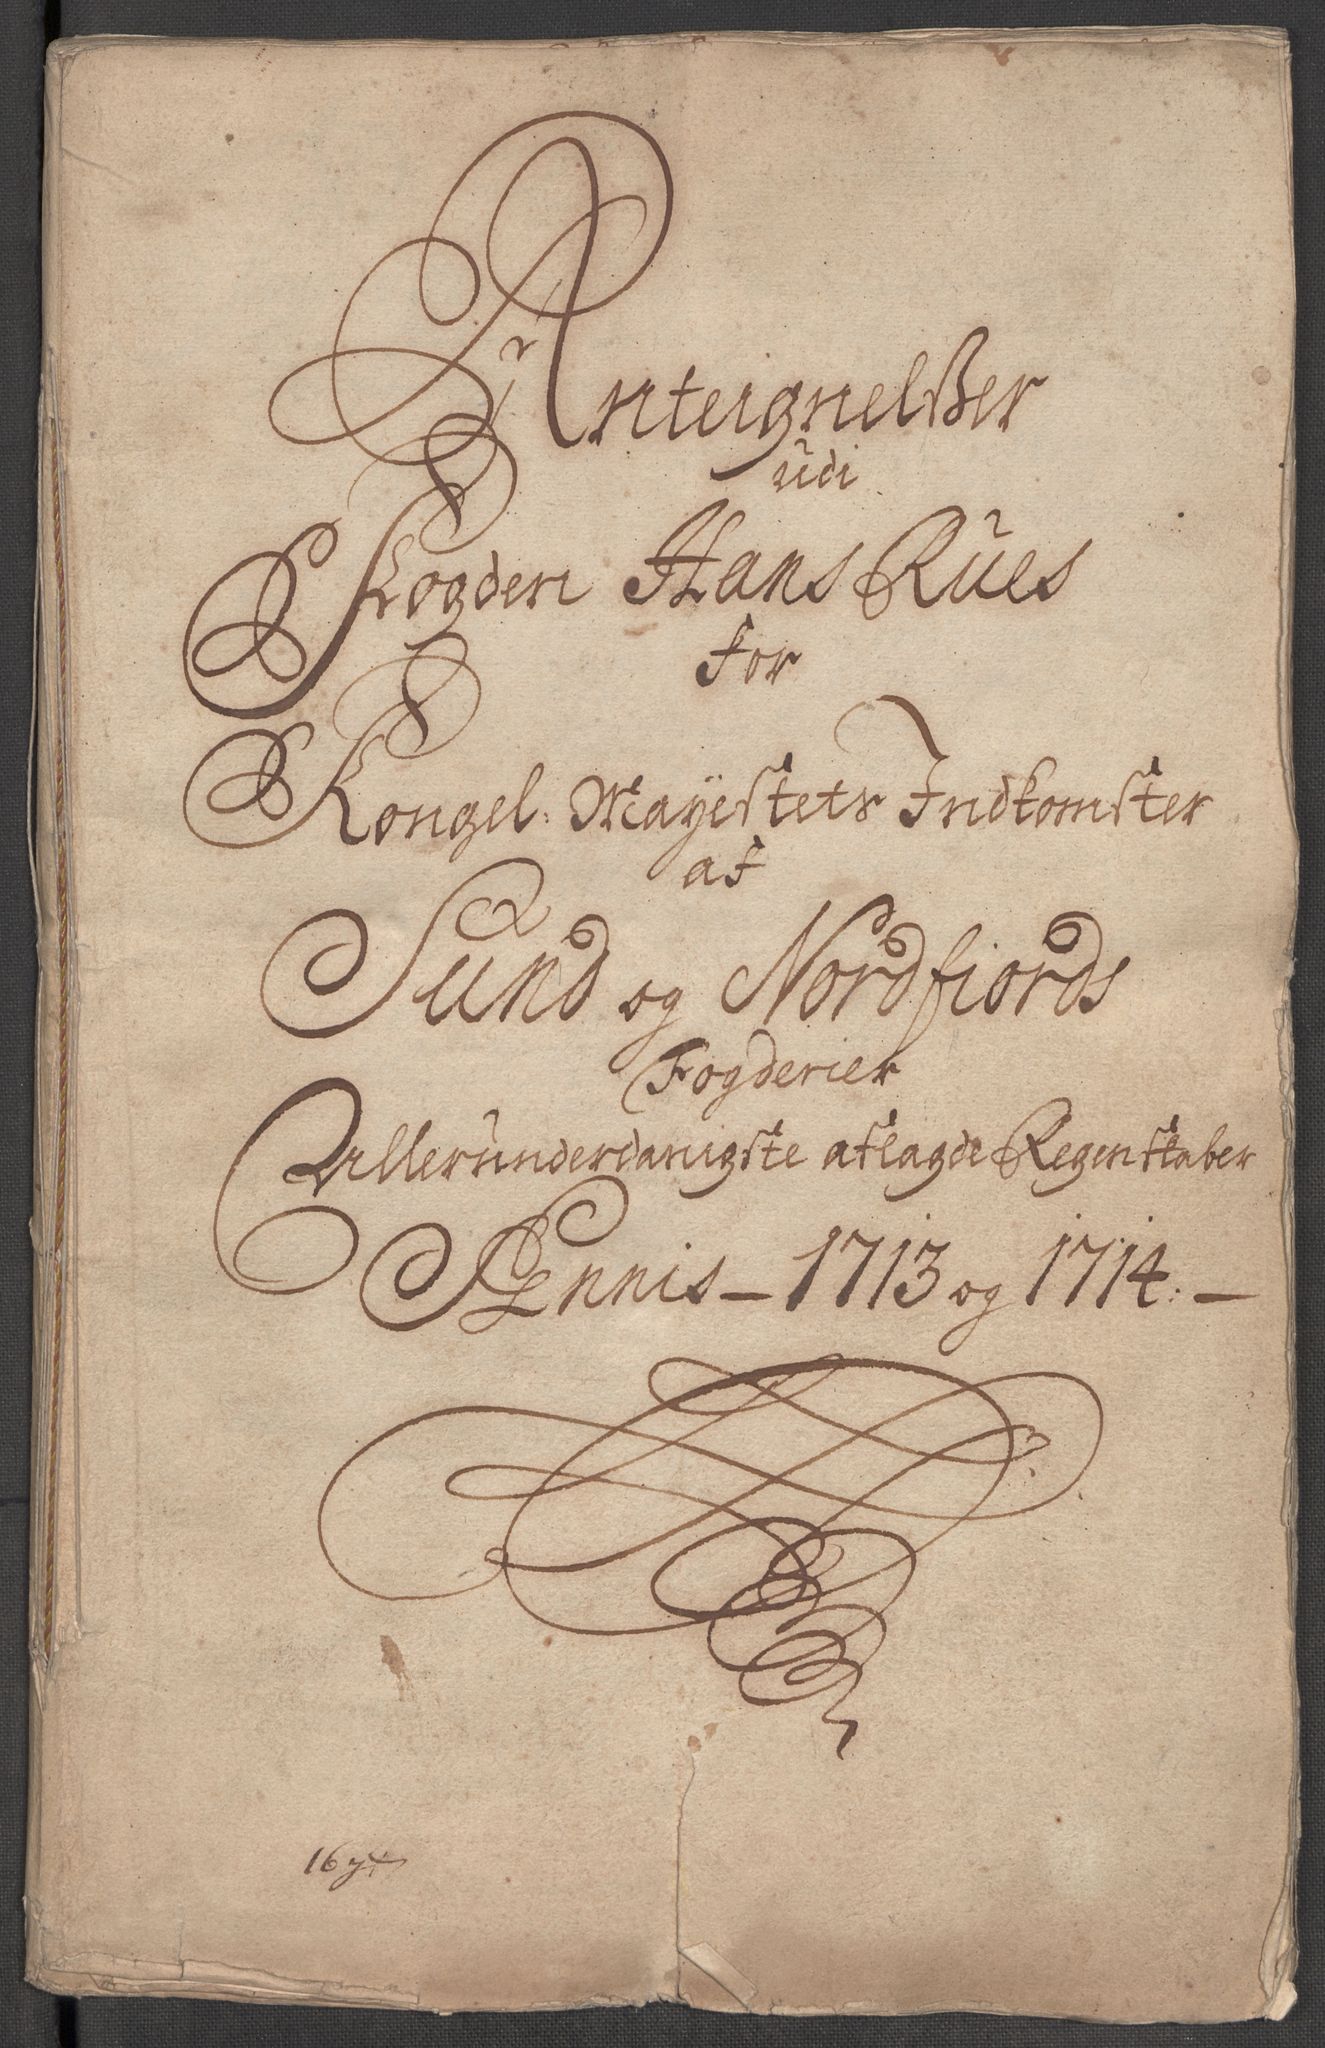 AnteignelsSer
udi
Fogden Hans Rües
for
Kongel: Mayestets Indkomster
af
Sund og Nordfiords
Fogderier
Alleründerdanigste aflagde Regenskaber
Pennis – 1713 og 1714: –